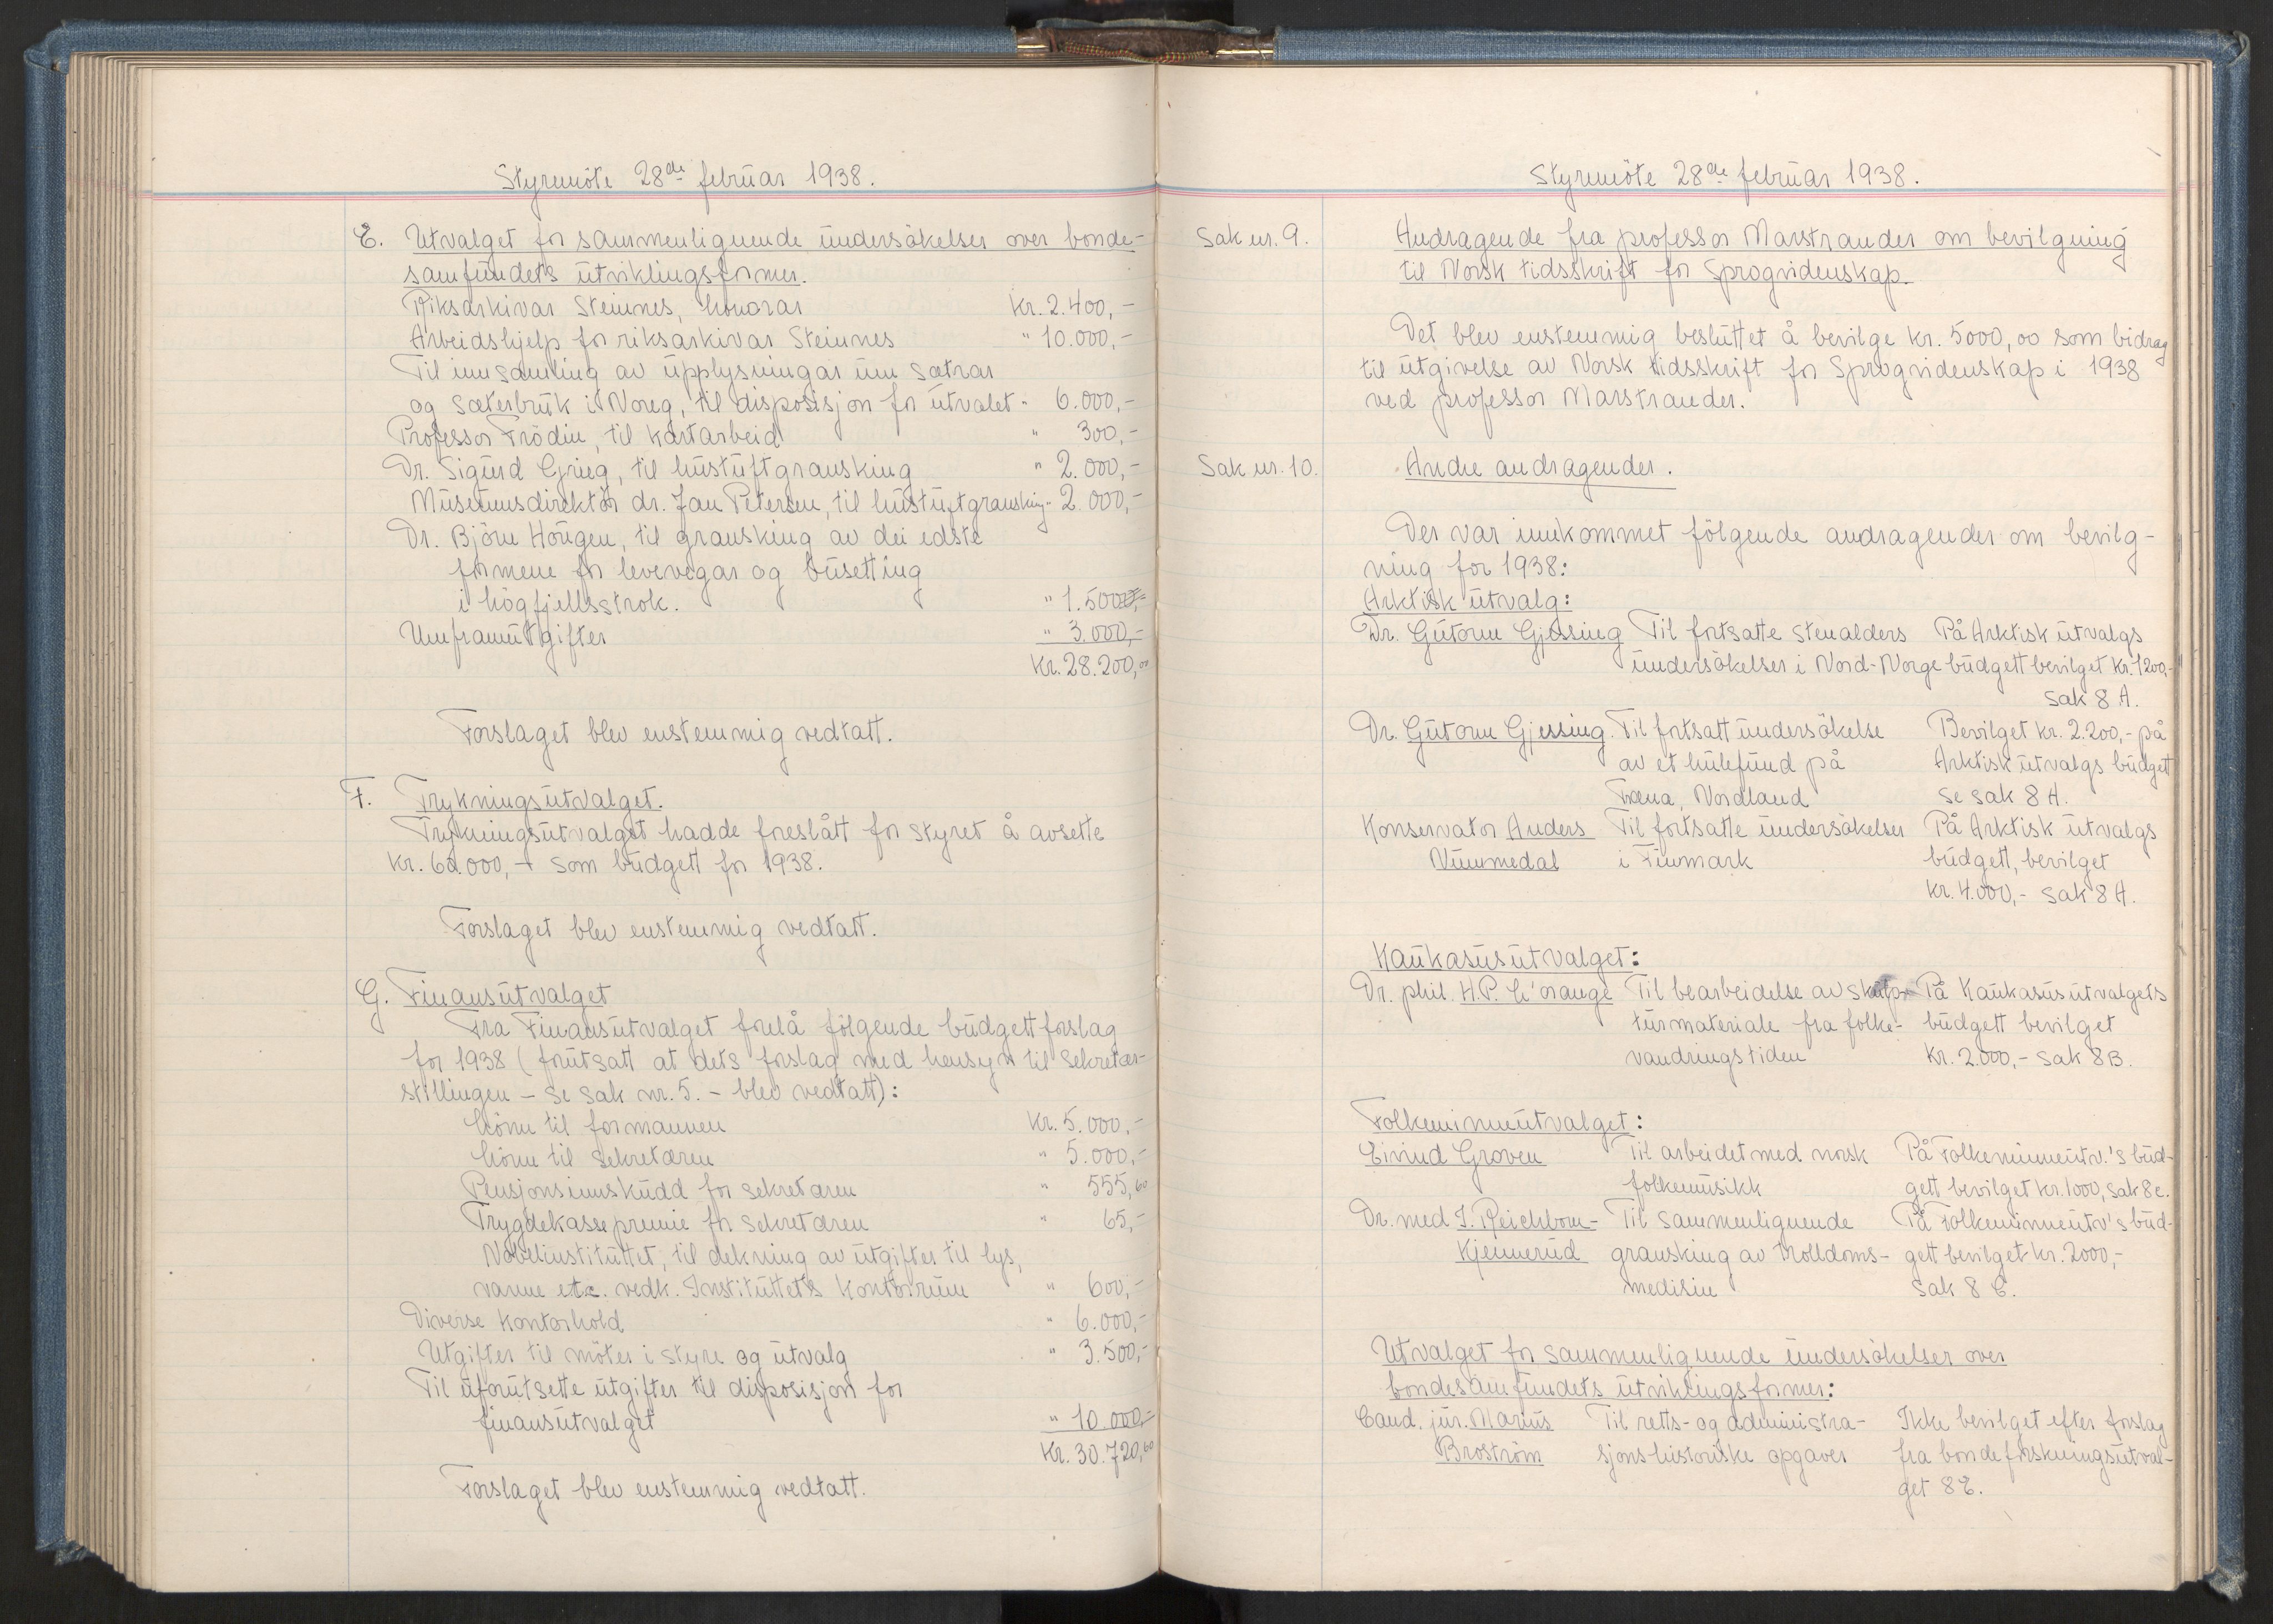 Styremöte 28de februar 1938.
E. Utvalget for sammenlignende undersökelser over bonde-
samfundets utviklingsformer.
Riksarkivar Steinnes, honorar Kr. 2.400,-
Arbeidshjelp for riksarkivar Steinnes " 10.000,-
Til innsamling av upplysningar um sætrar
og sæterbruk i Noreg, til disposisjon for utvalet " 6.000,-
Professor Frödin, til kartarbeid " 300,-
Dr. Sigurd Grieg, til hustuftgransking " 2.000,-
Museumsdirektör dr. Jan Petersen, til hustuftgransking " 2.000,-
Dr. Björn Hougen, til gransking av dei edste
formene for levevegar og busetting
i högfjellsstrok. " 1.500,-
Umframutgifter " 3.000,-
Kr. 28.200,00
Forslaget blev enstemmig vedtatt.
F. Trykningsutvalget.
Trykningsutvalget hadde foreslått for styret å avsette
kr. 60.000,- som budgett for 1938.
Forslaget blev enstemmig vedtatt.
G. Finansutvalget
Fra Finansutvalget forelå fölgende budgettforslag
for 1938 (forutsatt at dets forslag med hensyn til sekretær-
stillingen - se sak nr. 5. - blev vedtatt):
Lönn til formannen Kr. 5.000.-
Lönn til sekretæren " 5.000,-
Pensjonsinnskudd for sekretæren " 555,60
Trygdekassepremie for sekretæren " 65,-
Nobelinstituttet, til dekning av utgifter til lys,
varme etc. vedk. Instituttets kontorrum " 600,-
Diverse kontorhold " 6.000,-
Utgifter til möter i styre og utvalg " 3.500,-
Til uforutsette utgifter til disposisjon for
finansutvalget " 10.000,-
Kr. 30.720,60
Forslaget blev enstemmig vedtatt.
Styremöte 28de februar 1938.
Sak nr. 9. Andragende fra professor Marstrander om bevilgning
til Norsk tidsskrift for Sprogvidenskap.
Det blev enstemmig besluttet å bevilge kr. 5000,00 som bidrag
til utgivelse av Norsk tidsskrift for Sprogvidenskap i 1938
ved professor Marstrander.
Sak nr. 10. Andre andragender.
Der var innkommet fölgende andragender om bevilg-
ning for 1938:
Arktisk utvalg:
Dr. Gutorm Gjessing Til fortsatte stenalders På Arktisk utvalgs
undersökelser i Nord-Norge budgett bevilget kr. 1200,-
Sak 8 A.
Dr. Gutorm Gjessing. Til fortsatt undersökelse Bevilget kr. 2.200,- på
av et hulefund på Arktisk utvalgs budgett
Træna, Nordland se sak 8 A.
Konservator Anders Til fortsatte undersökelser På Arktisk utvalgs
Nummedal i Finmark budgett, bevilget
kr. 4.000,- sak 8 A.
Kaukasusutvalget:
Dr. phil. H.P. L'orange Til bearbeidelse av skulp- På Kaukasusutvalgets
turmateriale fra folke- budgett bevilget
vandringstiden kr. 2.000,- sak 8 B.
Folkeminneutvalget:
Eivind Groven Til arbeidet med norsk På Folkeminneutv.'s bud-
folkemusikk gett bevilget kr. 1000, sak 8 c.
Dr. med I. Reichborn- Til sammenlignende På Folkeminneutv's bud-
Kjennerud gransking av trolldoms- gett bevilget kr. 2000,-
medisin sak 8 C.
Utvalget for sammenlignende undersökelser over
bondesamfundets utviklingsformer:
Cand. jur. Marius Til retts- og administra- Ikke bevilget efter forslag
Broström sjonshistoriske opgaver fra bondeforskningsutval-
get 8 E.